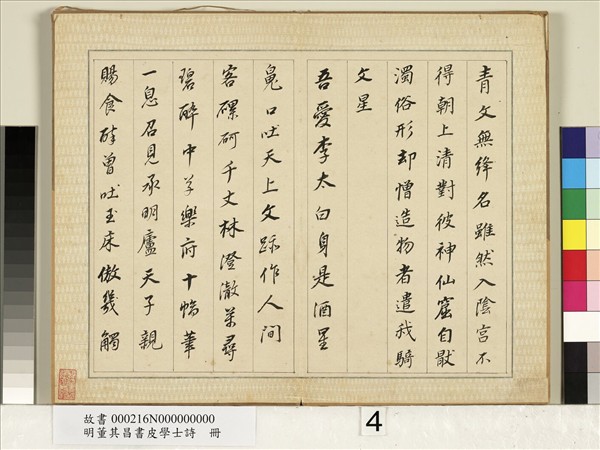 青文無絳名雖然入陰宮不
得朝上清對彼神仙窟自猒
濁俗形却憎造物者遣我騎
文星
吾愛李太白身是酒星
魂口吐天上文跡作人間
客磥砢千丈林澄澈萬尋
碧醉中草樂府十幅筆
一息召見承明廬天子親
賜食醉曾吐玉床傲幾觸
故書 000216N000000000
明董其昌書皮學士詩 冊
4